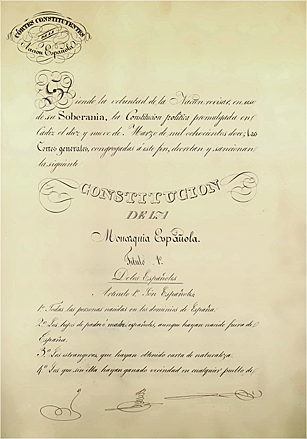 CÓRTES CONSTITUYENTES
DE LA
Nacion Española
Siendo la voluntad de la Nacion revisar, en uso
de su Soberanía, la Constitucion politica promulgada en
Cádiz el diez y nueve de Marzo de mil ochocientos doce, las
Cortes generales, congregadas á este fin, decretan y sancionan
la siguiente
CONSTITUCION
DE LA
Monarquia Española.
Titulo 1º
De los Españoles
Articulo 1º Son Españoles
1º Todas las personas nacidas en los dominios de España.
2º Los hijos de padre ó madre españoles, aunque hayan nacido fuera de
España.
3º Los estrangeros que hayan obtenido carta de naturaleza
4º Los que sin ella hayan ganado vecindad en cualquier pueblo de